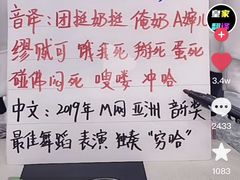 皇家翻译
音译:团挺奶挺 俺奶A婶儿
缪腻可 饿我死 掰死 蛋死
碰佛闷死 嗖喽 冲哈
中文:2019年M网亚洲音乐奖
最佳舞蹈表演 独奏"穷哈"
3.4w
2433
1083